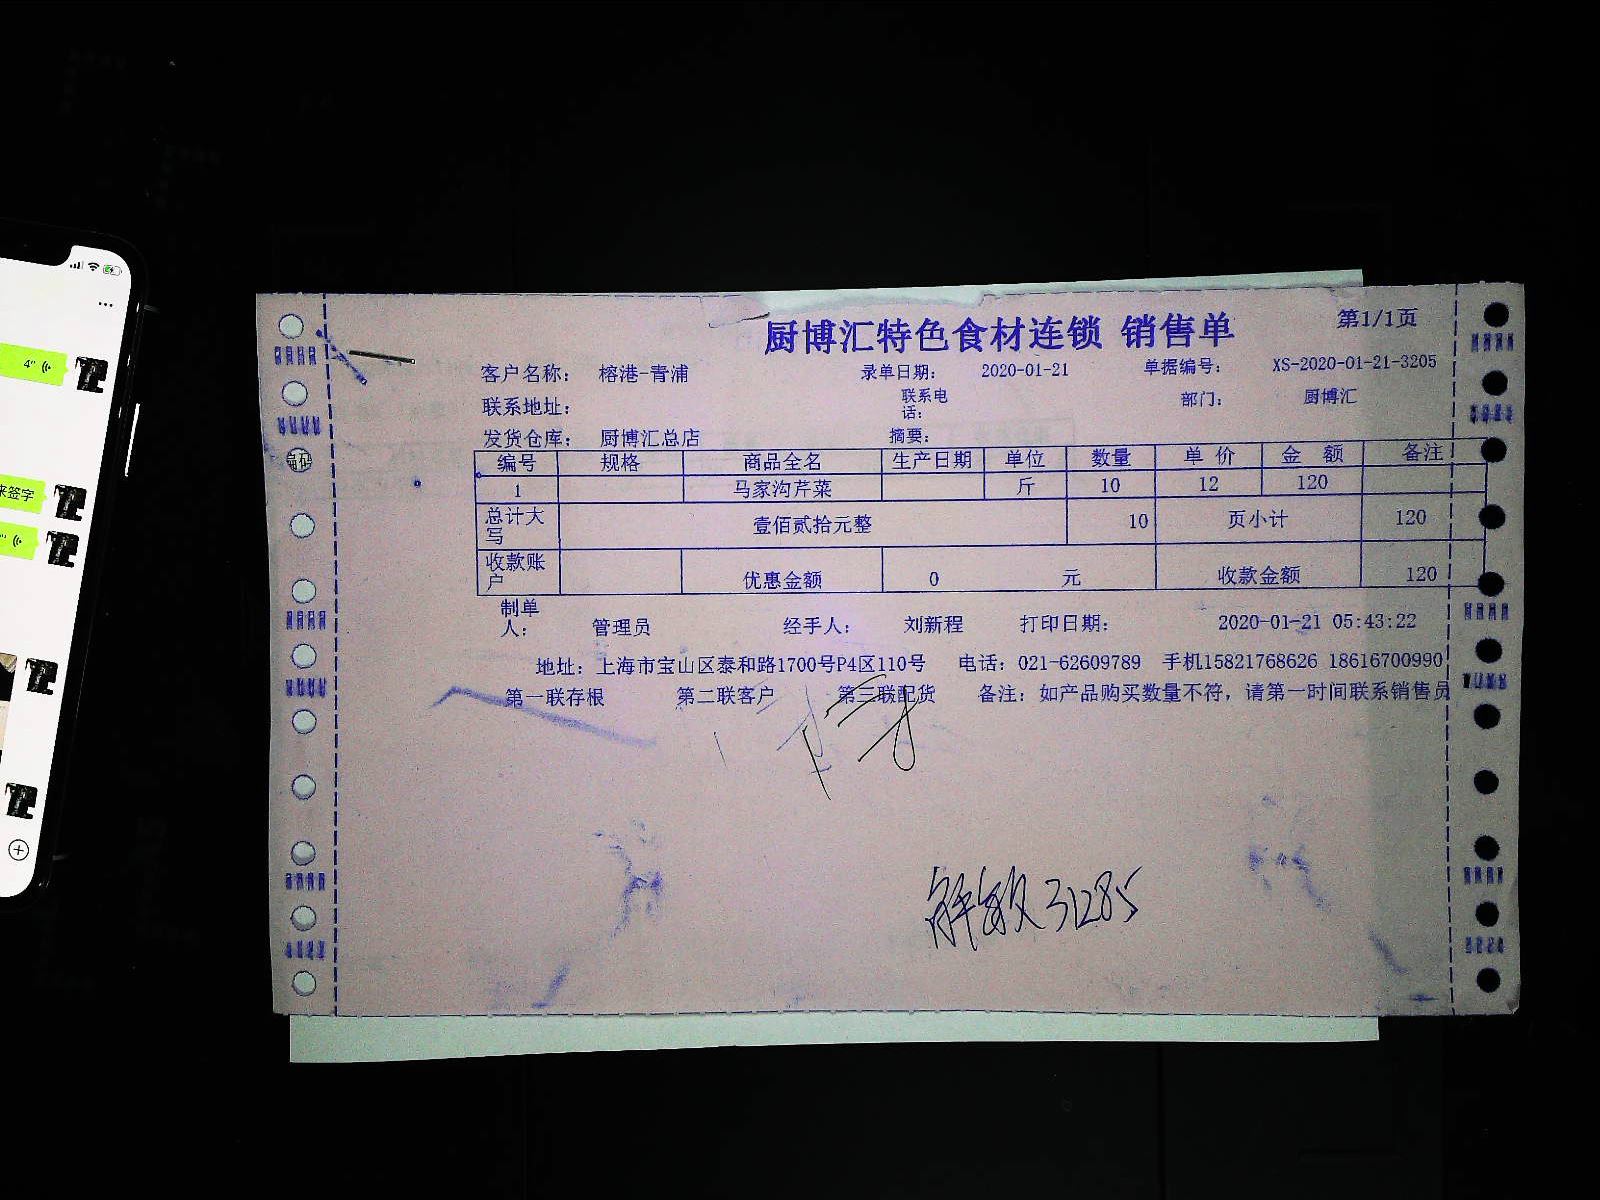 厨博汇特色食材连锁 销售单
第1/1页
客户名称： 榕港-青浦 录单日期： 2020-01-21 单据编号： XS-2020-01-21-3205
联系地址： 联系电话： 部门： 厨博汇
发货仓库： 厨博汇总店 摘要：
编号 规格 商品全名 生产日期 单位 数量 单价 金额 备注
1 马家沟芹菜 斤 10 12 120
总计大写 壹佰贰拾元整 10 页小计 120
收款账户 优惠金额 0 元 收款金额 120
制单人： 管理员 经手人： 刘新程 打印日期： 2020-01-21 05:43:22
地址：上海市宝山区泰和路1700号P4区110号 电话：021-62609789 手机15821768626 18616700990
第一联存根 第二联客户 第三联配货 备注：如产品购买数量不符，请第一时间联系销售员
解敏 31285
4"
来签字